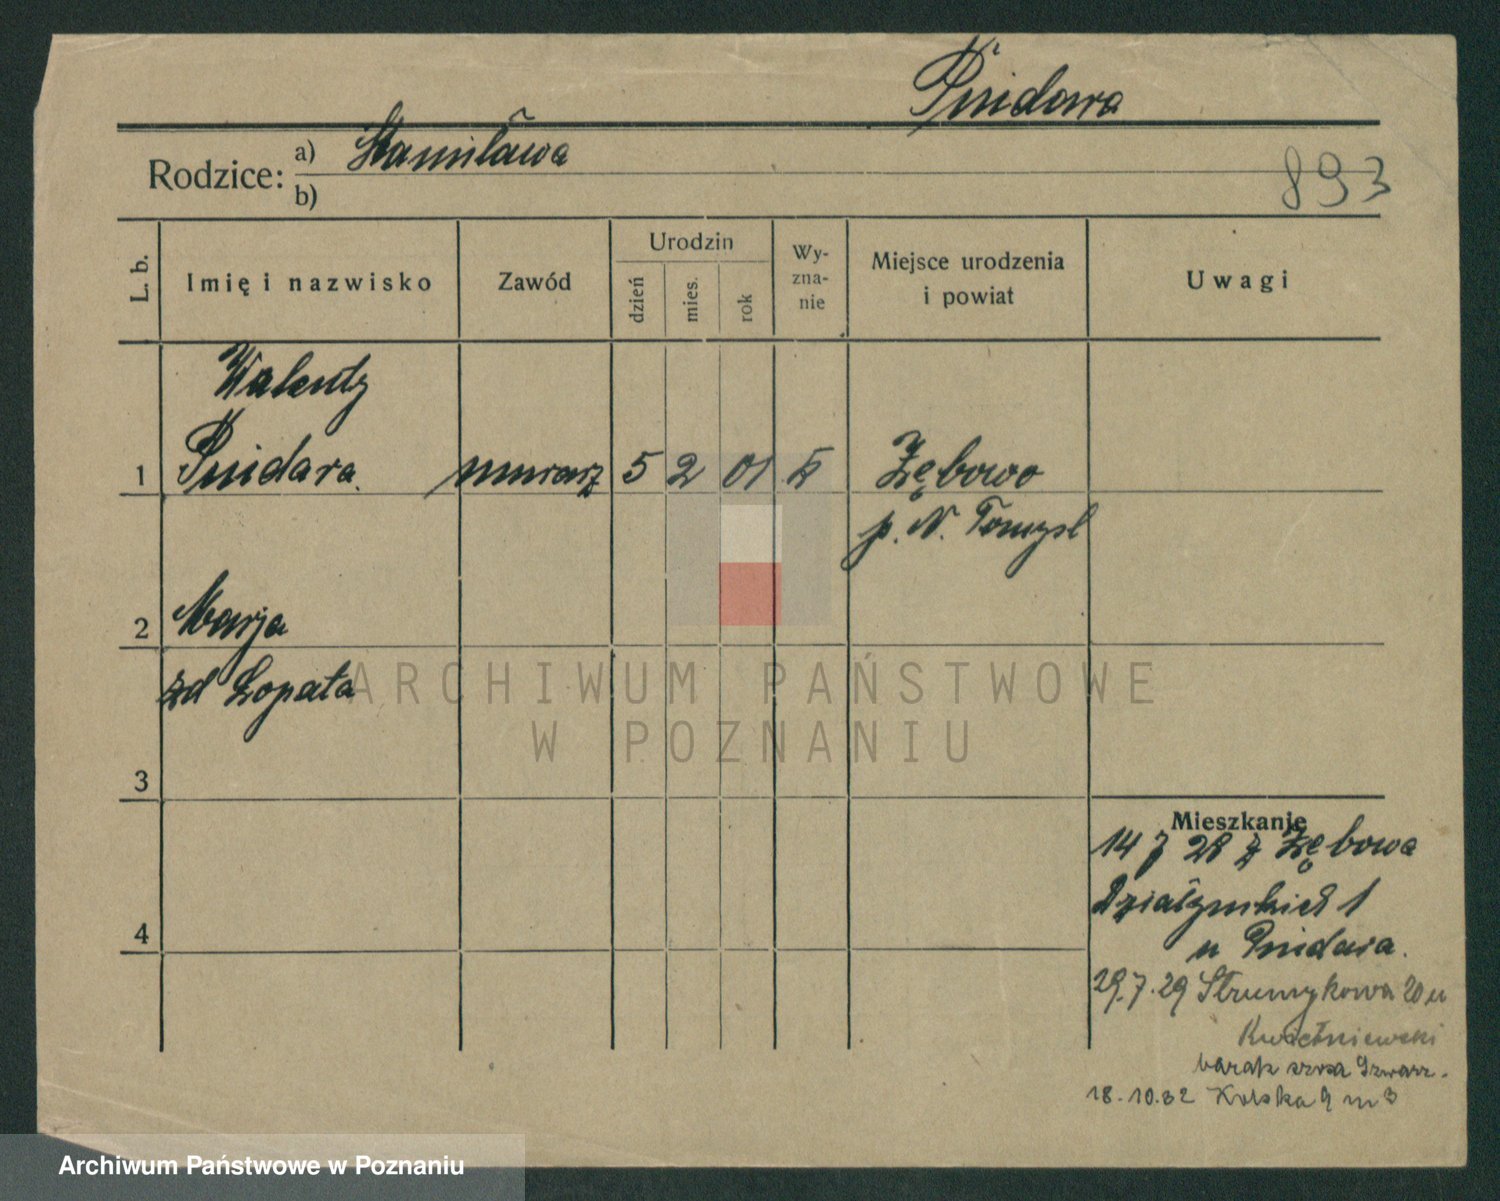 Pnidara
Rodzice: a) Stanisława
b)
893
L. b.
Imię i nazwisko
Zawód
Urodzin
dzień
mies.
rok
Wy-
zna-
nie
Miejsce urodzenia
i powiat
Uwagi
Walenty
1 Pnidara murarz 5 2 01 k Zębowo
p. N. Tomyśl
2 Marja
zd Łopata
3
4
Mieszkanie
14 7 28 z Zębowa
1
u Pnidara.
29.7.29 Strumykowa 20 u
Kwietniewski
barak
18.10.32 Kolska 9 m 3
ARCHIWUM PAŃSTWOWE
W POZNANIU
Archiwum Państwowe w Poznaniu